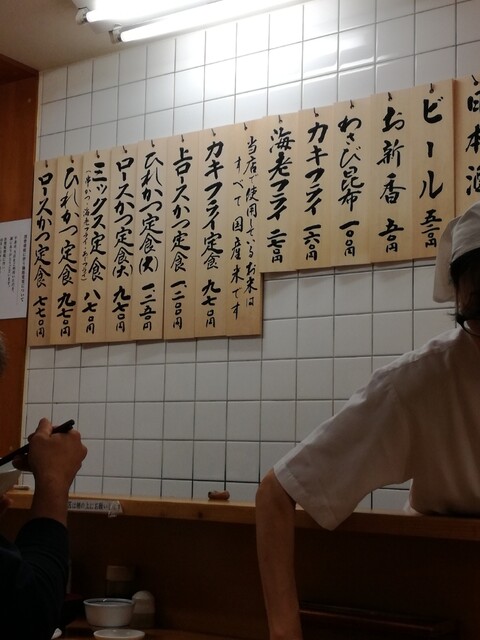 日本酒
ビール 五三〇円
お新香 五〇円
わさび昆布 一〇〇円
カキフライ 一六〇円
海老フライ 二七〇円
当店で使用しているお米は
すべて国産米です
カキフライ定食 九七〇円
上ロースかつ定食 一二〇〇円
ひれかつ定食(大) 一二五〇円
ロースかつ定食(大) 九七〇円
ミックス定食 八七〇円
ひれかつ定食 九七〇円
ロースかつ定食 七七〇円